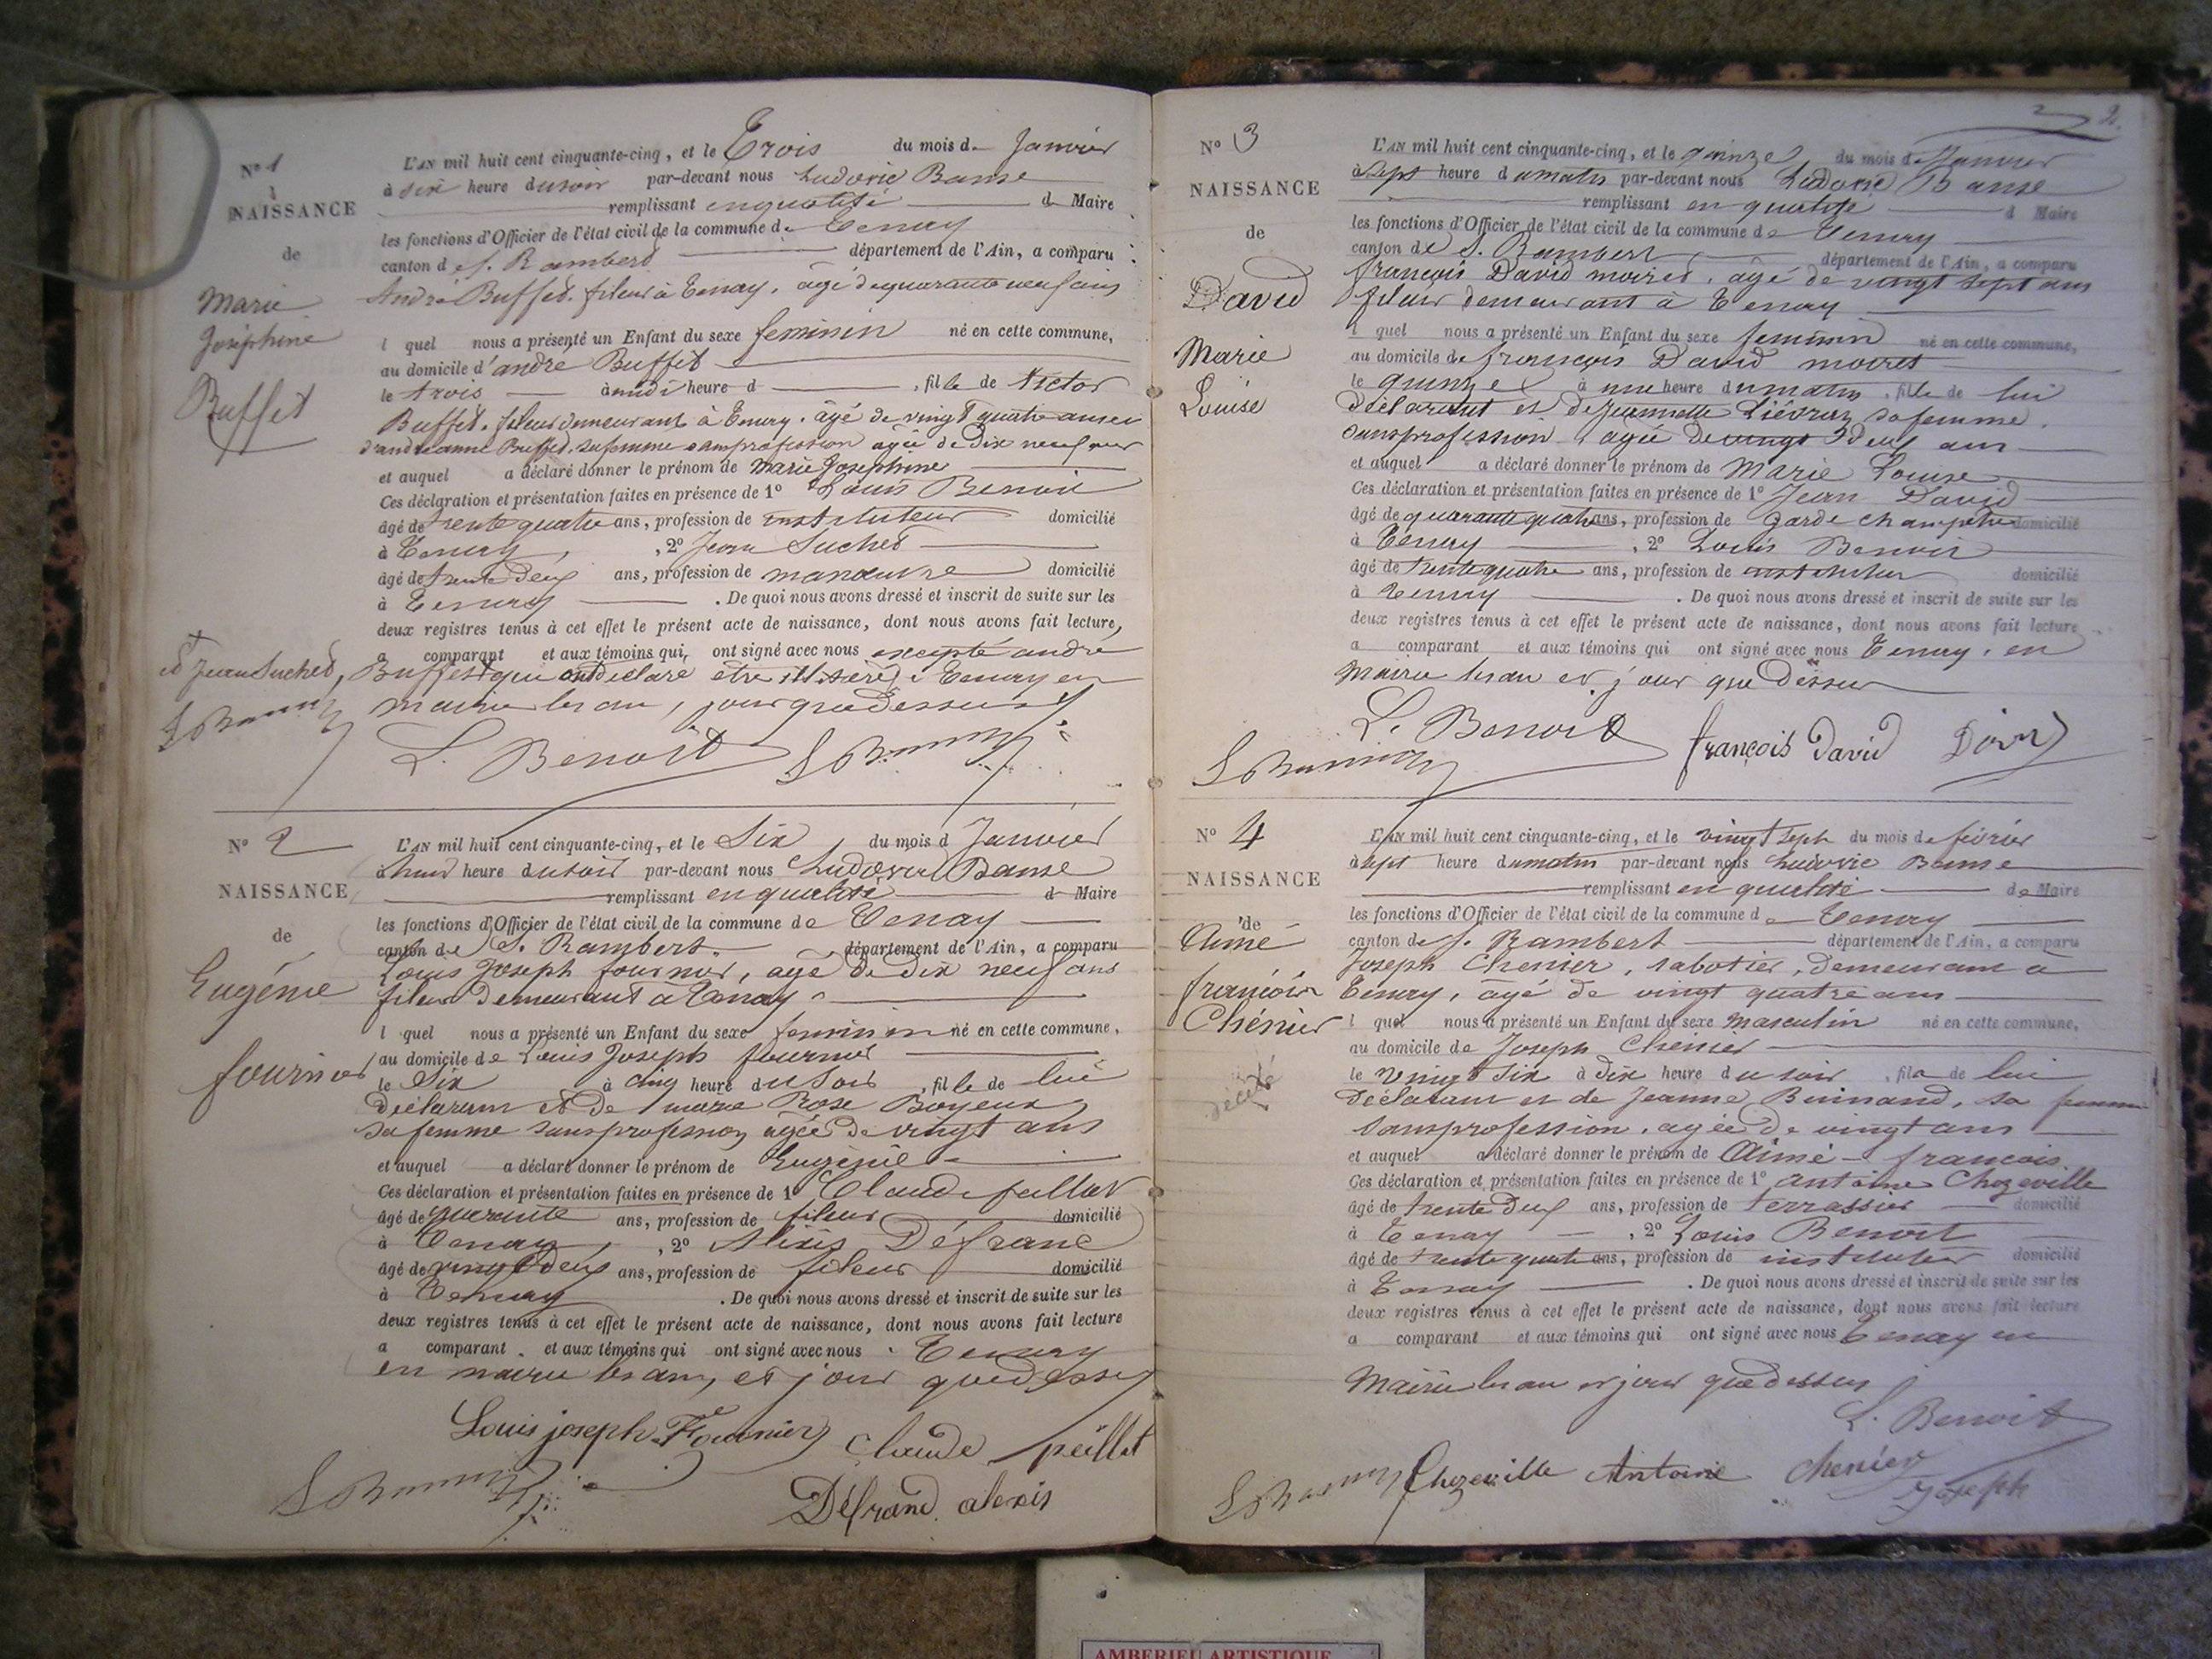 No 1
NAISSANCE
de
Marie
Joséphine
Buffet
L'AN mil huit cent cinquante-cinq, et le Trois du mois d Janvier
à six heure du soir par-devant nous Ludovic
remplissant en qualité d Maire
les fonctions d'Officier de l'état civil de la commune de Tenay
canton de S. Rambert département de l'Ain, a comparu :
André Buffet, fileur à Tenay, âgé de quarante neuf ans
l quel nous a présenté un Enfant du sexe feminin né en cette commune,
au domicile d'andré Buffet
le trois à midi heure d , fille de Victor
Buffet, fileur demeurant à Tenay, âgé de vingt quatre ans et
Buffet, sa femme sans profession agée de Dix neuf ans
et auquel a déclaré donner le prénom de Marie Josephine
Ces déclaration et présentation faites en présence de 1º Louis Benoit
âgé de trente quatre ans, profession de instituteur domicilié
à Tenay, , 2º Jean Suchet
âgé de trente deux ans, profession de manœuvre domicilié
à Tenay . De quoi nous avons dressé et inscrit de suite sur les
deux registres tenus à cet effet le présent acte de naissance, dont nous avons fait lecture,
a comparant et aux témoins qui, ont signé avec nous excepté andré
et Jean Suchet, Buffet qui ont déclaré être illiterés. Tenay en
mairie les an, jour que dessus
L. Benoit
No 2
NAISSANCE
de
Eugénie
fournier
L'AN mil huit cent cinquante-cinq, et le Six du mois d Janvier
à huit heure du soir par-devant nous Ludovic
remplissant en qualité d Maire
les fonctions d'Officier de l'état civil de la commune de Tenay
canton de S. Rambert. département de l'Ain, a comparu
Louis Joseph fournier, agé de dix neuf ans
fileur demeurant à Tenay
l quel nous a présenté un Enfant du sexe feminin né en cette commune,
au domicile de Louis Joseph fournier
le Six à cinq heure du Soir , fille de lui
Déclarant et de marie Rose Boyeux
sa femme sans profession agée de vingt ans
et auquel a déclaré donner le prénom de Eugénie
Ces déclaration et présentation faites en présence de 1º Claude peillot
âgé de quarante ans, profession de fileur domicilié
à Tenay, , 2º Alexis Défrane
âgé de vingt deux ans, profession de fileur domicilié
à Tenay . De quoi nous avons dressé et inscrit de suite sur les
deux registres tenus à cet effet le présent acte de naissance, dont nous avons fait lecture
a comparant . et aux témoins qui ont signé avec nous . Tenay
en mairie les an, et jour que dessus
Louis joseph Fournier claude peillot
alexis
2.
No 3
NAISSANCE
de
David
Marie
Louise
L'AN mil huit cent cinquante-cinq, et le quinze du mois de Janvier
à sept heure du matin par-devant nous Ludovic
remplissant en qualité d Maire
les fonctions d'Officier de l'état civil de la commune de Tenay
canton de S. Rambert département de l'Ain, a comparu
françois David moiret, âgé de vingt sept ans
fileur demeurant à Tenay
l quel nous a présenté un Enfant du sexe feminin né en cette commune,
au domicile de françois David moiret
le quinze à une heure du matin , fille de lui
Déclarant et de Jeannette sa femme,
sans profession agée de vingt deux ans
et auquel a déclaré donner le prénom de Marie Louise
Ces déclaration et présentation faites en présence de 1º Jean David
âgé de quarante quatre ans, profession de garde champêtre domicilié
à Tenay , 2º Louis Benoit
âgé de trente quatre ans, profession de instituteur domicilié
à Tenay . De quoi nous avons dressé et inscrit de suite sur les
deux registres tenus à cet effet le présent acte de naissance, dont nous avons fait lecture
a comparant et aux témoins qui ont signé avec nous Tenay, en
Mairie les an et jour que Dessus
L. Benoit françois david
No 4
NAISSANCE
de
Aimé
françois
Chénier
décédé
L'AN mil huit cent cinquante-cinq, et le vingt sept du mois de février
à sept heure du matin par-devant nous Ludovic
remplissant en qualité de Maire
les fonctions d'Officier de l'état civil de la commune de Tenay
canton de S. Rambert département de l'Ain, a comparu
Joseph Chenier, sabotier, demeurant à
Tenay, âgé de vingt quatre ans
l quel nous a présenté un Enfant du sexe masculin né en cette commune,
au domicile de Joseph Chenier
le vingt six à dix heure du soir , fils de lui
Déclarant et de Jeanne sa femme
sans profession, agée de vingt ans
et auquel a déclaré donner le prénom de Aimé françois.
Ces déclaration et présentation faites en présence de 1º antoine Chozeville
âgé de trente deux ans, profession de terrassier domicilié
à Tenay , 2º Louis Benoit
âgé de trente quatre ans, profession de instituteur domicilié
à Tenay . De quoi nous avons dressé et inscrit de suite sur les
deux registres tenus à cet effet le présent acte de naissance, dont nous avons fait lecture
a comparant et aux témoins qui ont signé avec nous Tenay en
Mairie les an et jour que dessus
L. Benoit
Chozeville Antoine chenier
Joseph
AMBERIEU ARTISTIQUE